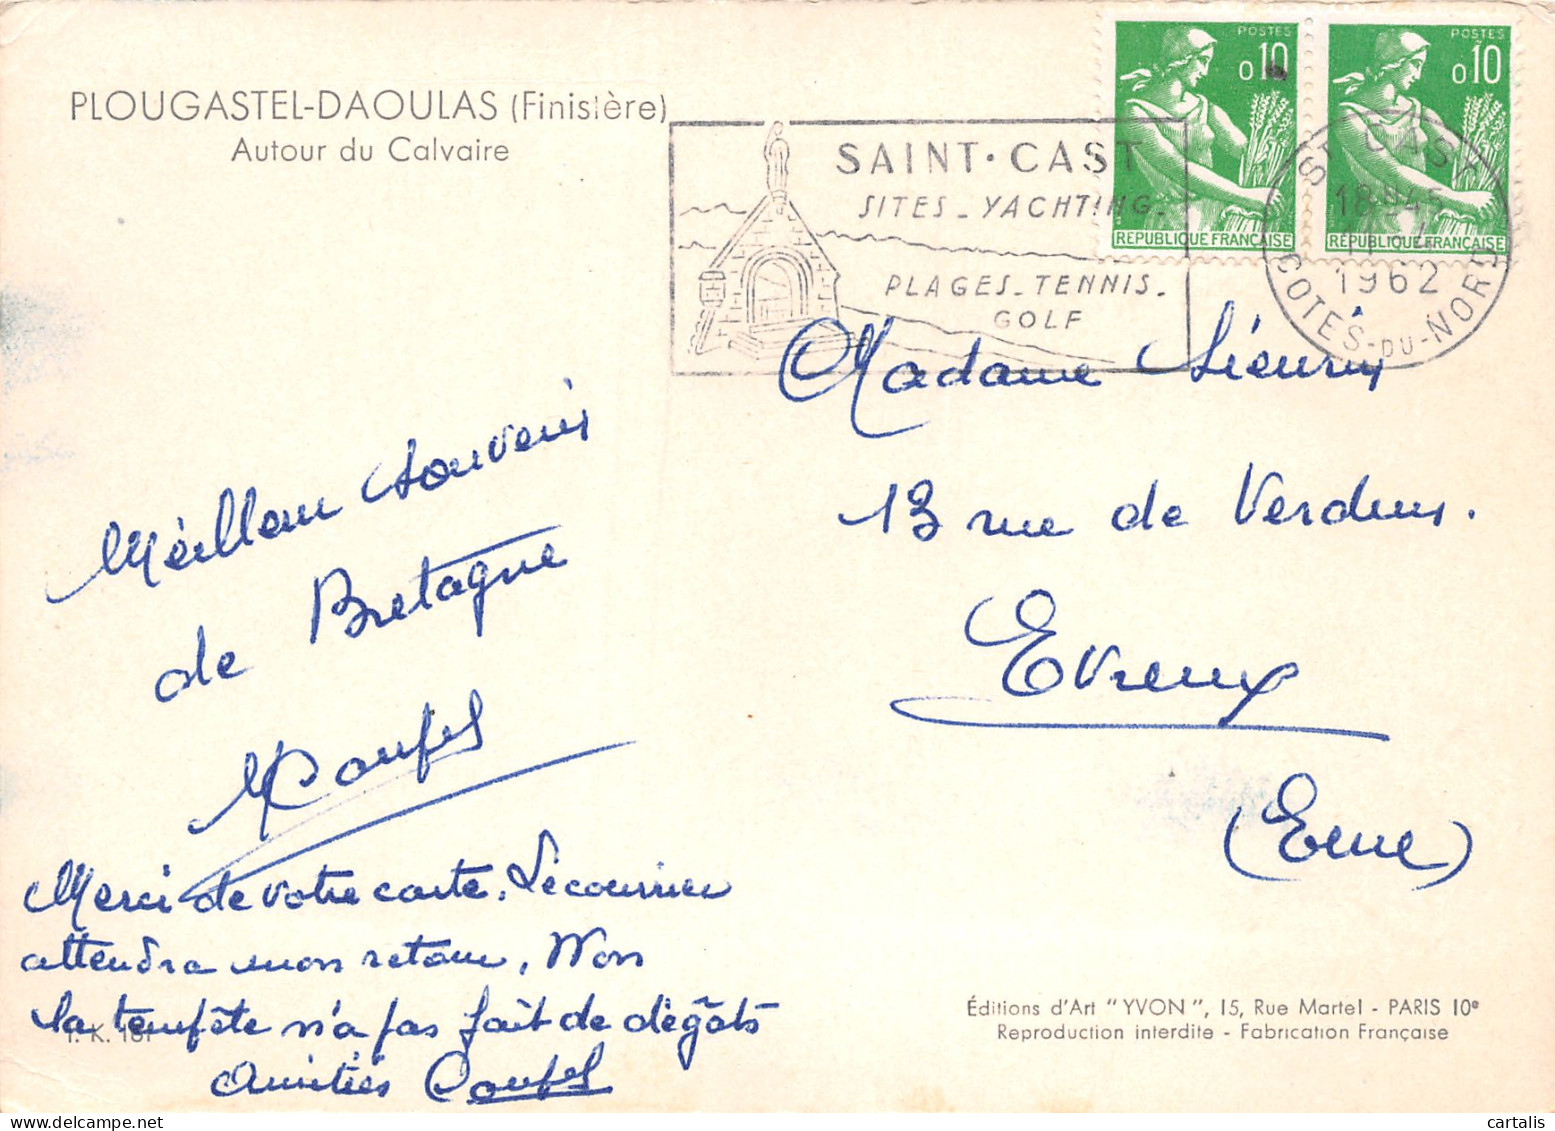 PLOUGASTEL-DAOULAS (Finistère)
Autour du Calvaire
SAINT·CAST
SITES_YACHTING_
PLAGES_TENNIS_
GOLF
POSTES
0 10
RÉPUBLIQUE FRANÇAISE
POSTES
0 10
RÉPUBLIQUE FRANÇAISE
ST CAST
18H45
1962
COTES-DU-NORD
Madame
13 rue de Verdun.
Evreux
(Eure)
Meilleurs souvenirs
de Bretagne
Merci de votre carte. Le courrier
attendra mon retour. Non
la tempête n'a pas fait de dégâts
Amitiés
Éditions d'Art "YVON", 15, Rue Martel - PARIS 10e
Reproduction interdite - Fabrication Française
cartalis